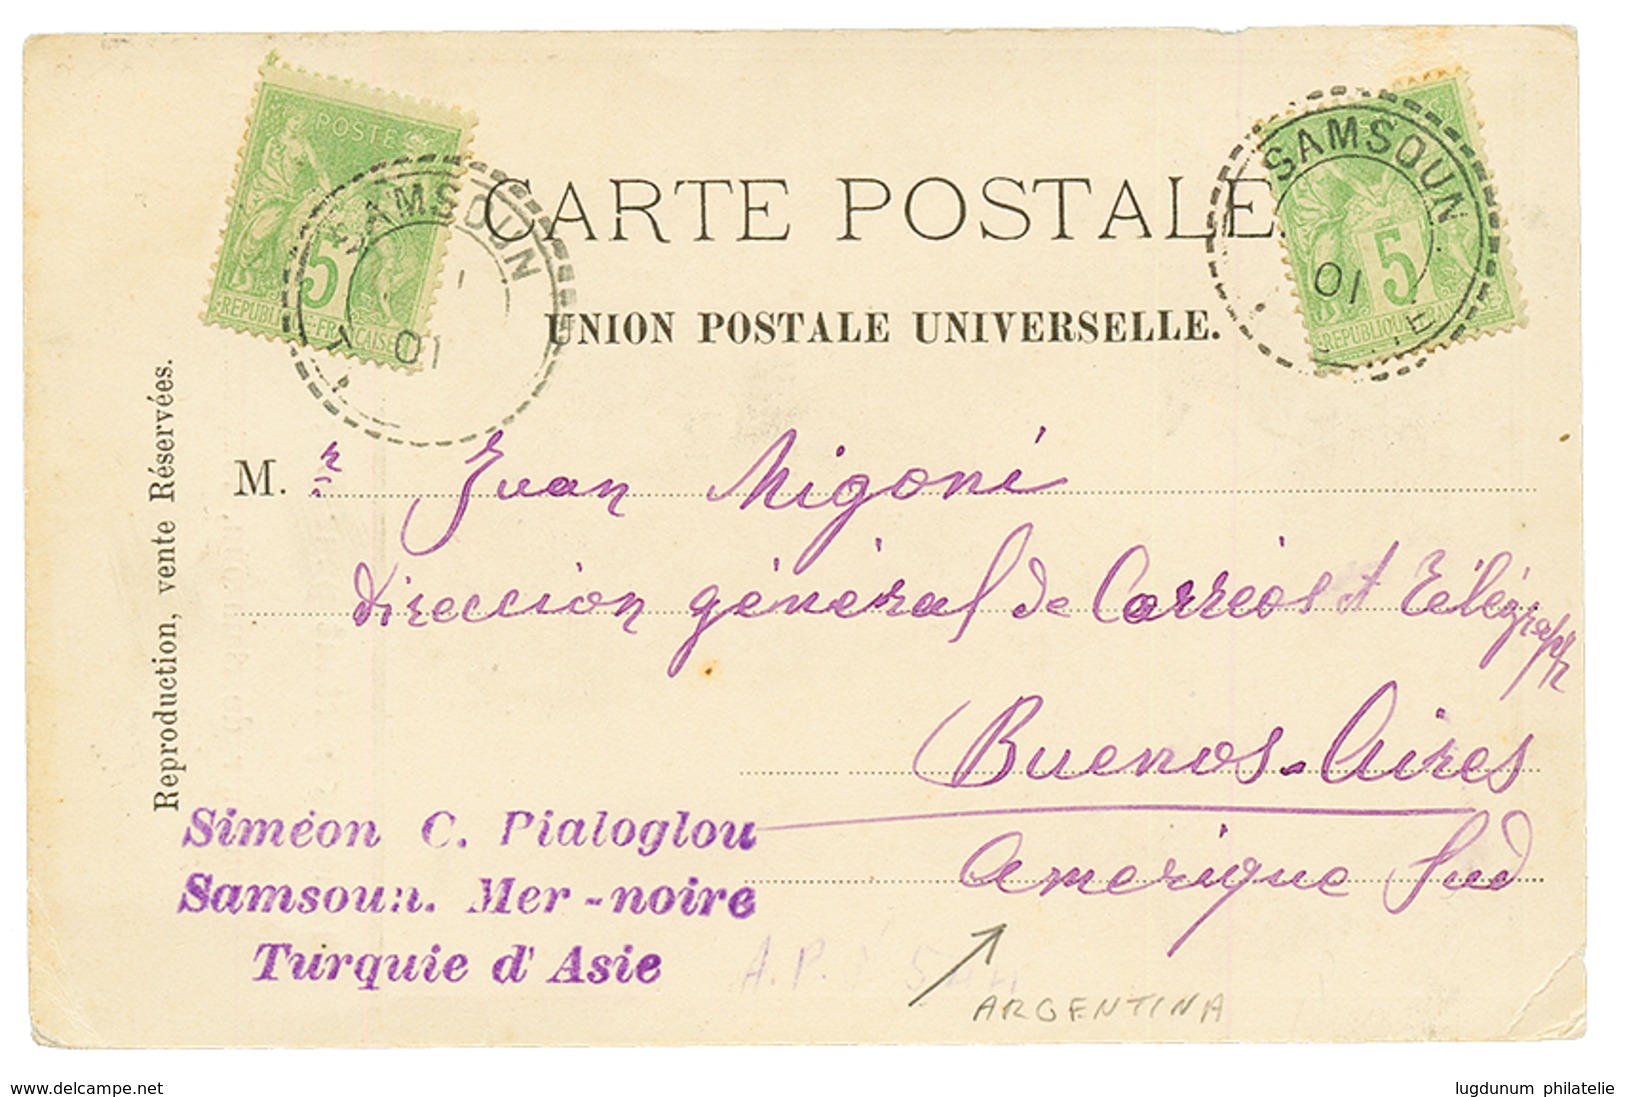 POSTE
5
REPUBLIQUE-FRANCAISE
SAMSOUN
01
SAMSOUN
01
5
REPUBLIQUE FRANCAISE
CARTE POSTALE.
UNION POSTALE UNIVERSELLE.
Reproduction, vente Réservées.
M. r Juan Migoni
Direccion général de Correos et Télégraph
Buenos-Aires
Amerique Sud
Siméon C. Pialoglou
Samsoun. Mer-noire
Turquie d'Asie
ARGENTINA
www.delcampe.net
lugdunum philatelie